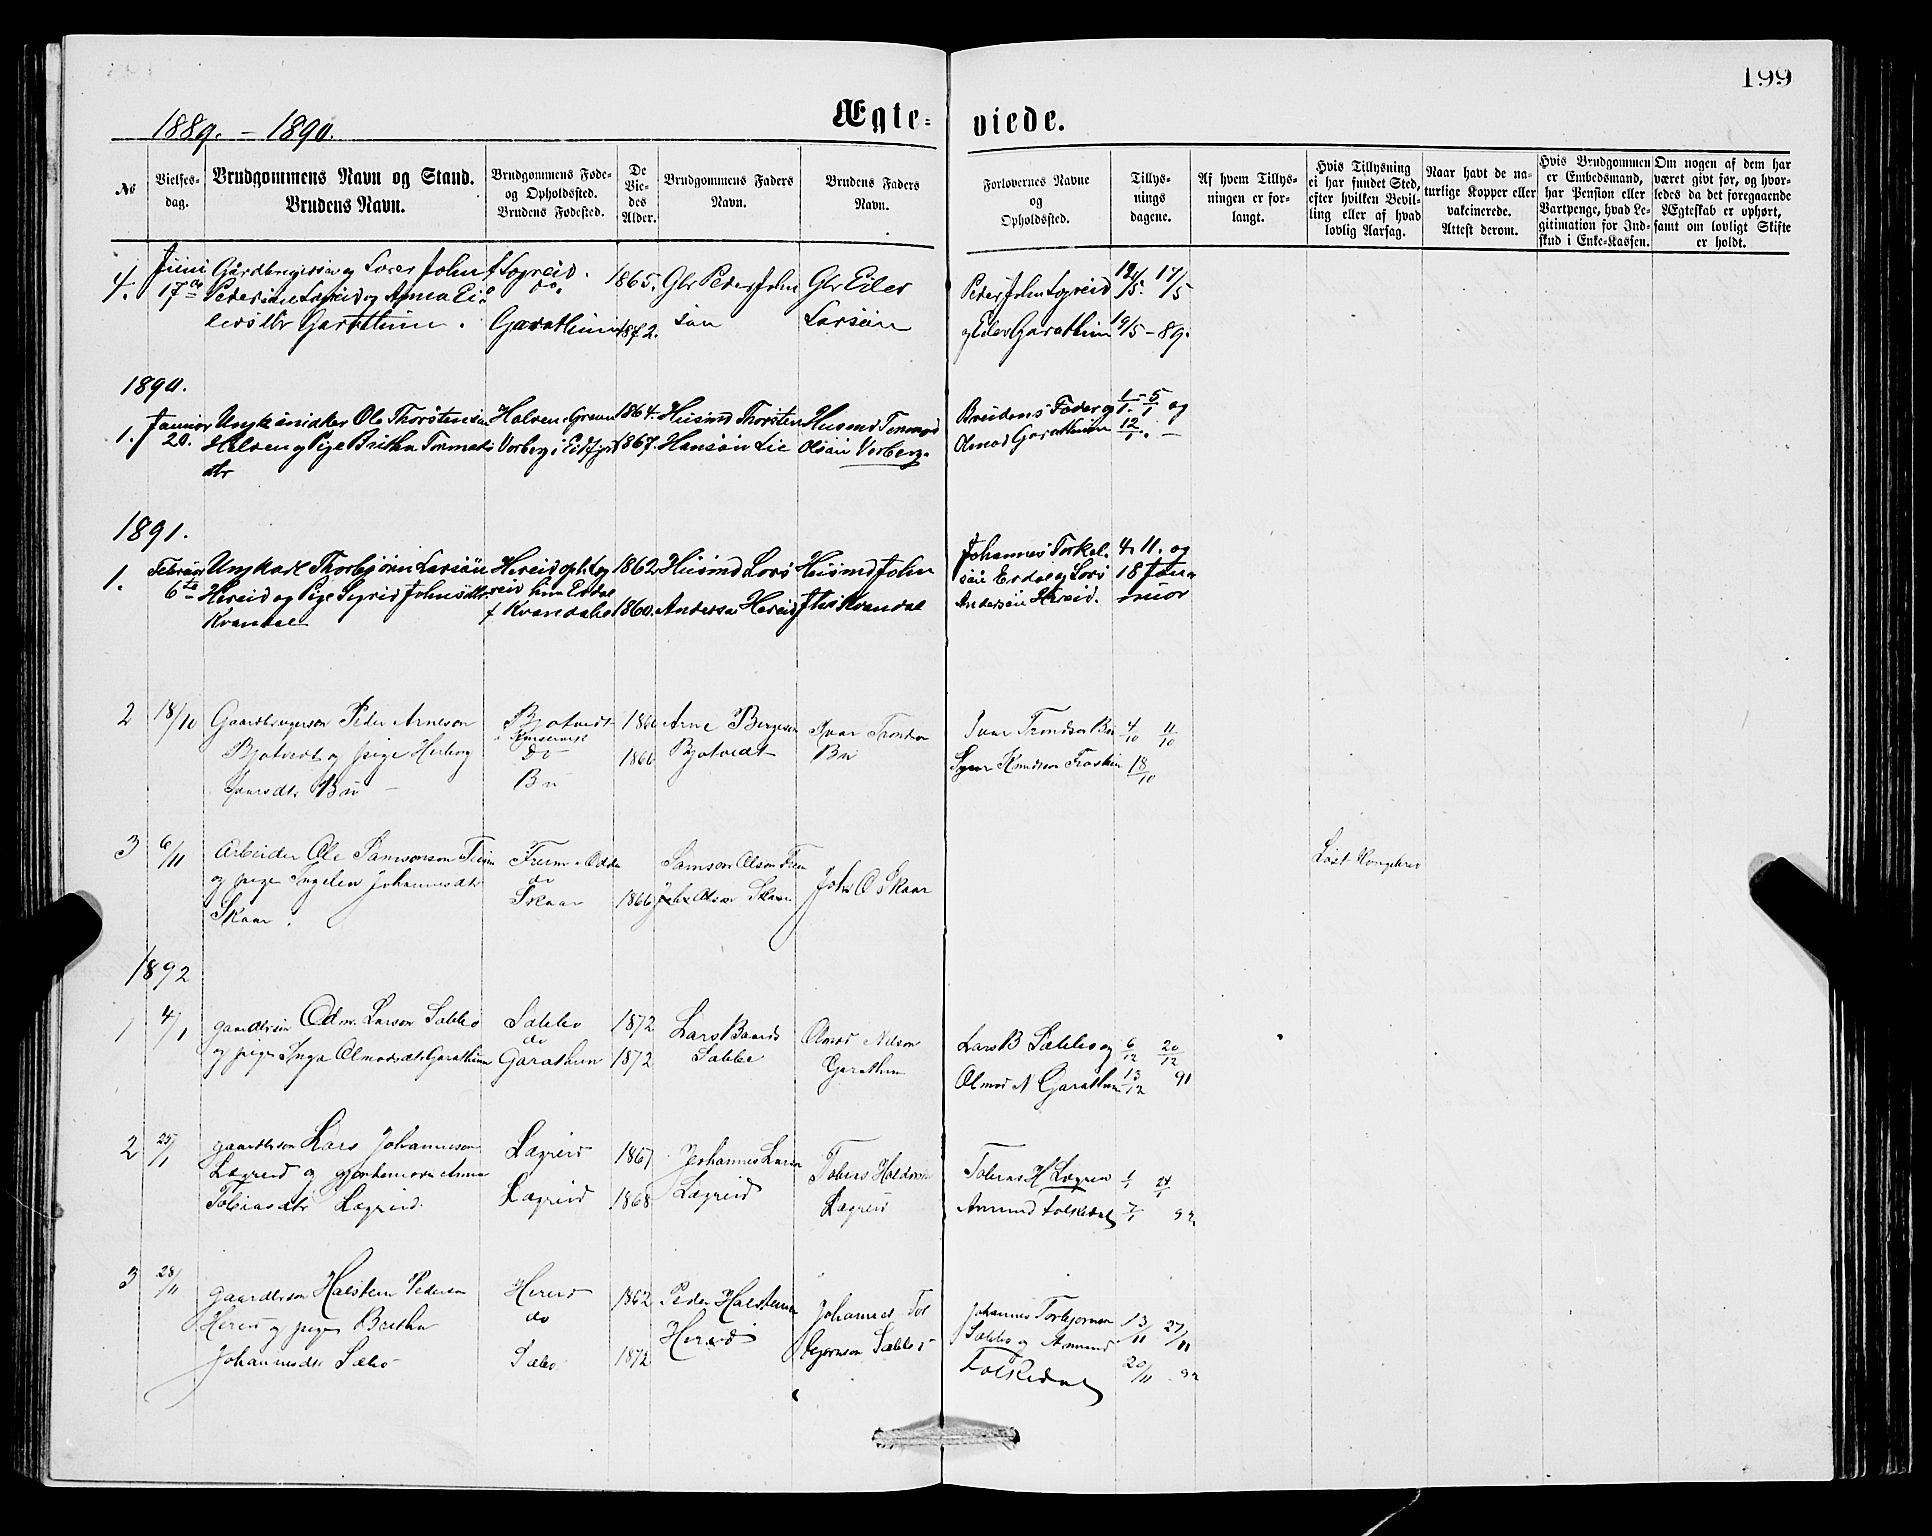 199
1889. - 1890.
Ægte-
viede.
No
Vielses-
dag.
Brudgommens Navn og Stand.
Brudens Navn.
Brudgommens Føde-
og Opholdssted.
Brudens Fødested.
De
Vie-
des
Alder.
Brudgommens Faders
Navn.
Brudens Faders
Navn.
Forlovernes Navne
og
Opholdssted.
Tillys-
nings
dagene.
Af hvem Tillys-
ningen er for-
langt.
Hvis Tillysning
ei har fundet Sted,
efter hvilken Bevil-
ling eller af hvad
lovlig Aarsag.
Naar havt de na-
turlige Kopper eller
vakcinerede.
Attest derom.
Hvis Brudgommen
er Embedsmand,
har Pension eller
Vartpenge, hvad Le-
gitimation for Ind-
skud i Enke-Kassen.
Om nogen af dem har
været givt før, og hvor-
ledes da det foregaaende
Ægteskab er ophørt,
samt om lovligt Skifte
er holdt.
4.
Juni
17de
og
Anna Ei
Garathun.
do.
Garathun
1865.
1872.
Gbr Peder John
søn
Gbr Eiler
Larsøn
Peder John
og Eiler Garathun
12/5. 17/5
19/5 - 89.
1890.
1.
Januar
20.
Ole Thorstensøn
og Pige Britha Tormods
dtr
Vorberg i Eidfjord
1864.
1867.
Husmd Thorsten
Hansøn Lie
Husmd Tormod
Olsøn Vorberg.
Brudens Fader og
Olmod Garathun
1/1. - 5/1 og
12/1. -
1891.
1.
Februar
6te
Ungkarl Thorbjørn Larsøn
Hereid og Pige Sigrid Johnsdtr
Kvandal
f Kvandale
1862
1860.
Husmd Lars
Anderss Hereid
Husmd John
Kvandal
Johannes Torkel-
søn Erdal og Lars
Andersøn Hereid.
4. 11. og
18 Jan
nuar
2
18/10
Gaardbrugerson Peder Arneson
Bjotvedt og pige Herborg
Ivarsdtr Bu
Bjotvedt
Do
Bu
1860
1860
Arne Bergeson
Bjotvedt
Ivar Trondson
Bu
Ivar Trondson Bu
Knudson
4/10 11/10
18/10
3
6/11
Arbeider Ole Samsonson
og pige Ingelen Johannesdtr
Skaar.
do
Skaar
1866
Samson Olson
Johs O Skaar
Løst Kongebrev
1892
1
4/1
Larson Sæbbø
og pige Inga Olmodsdtr Garathun
Sæbbø
do
Garathun
1872
1872
Lars Baards
Sæbbø
Olmod Nilson
Garathun
Lars B Sæbbø og
Olmod N Garathun
6/12 20/12
13/12 91
2
25/1
gaardbrson Lars Johanneson
Lægreid og Anna
Tobiasdtr Lægreid.
Lægreid
Lægreid
1867
1868
Johannes Larson
Lægreid
Tobias Haldorson
Lægreid
Tobias H Lægreid
Amund Folkedal
1/1 24/1
7/1 92
3
28/11
gaardbrson Halstein Pederson
Hereid og pige Britha
Johannesdtr Sæbø
Hereid
do
Sæbø
1862
1872
Peder Halsteinson
Hereid
Johannes Tor
bjørnson Sæbbø
Johannes Torbjørnson
Sæbbø og Amund
Folkedal
13/11 27/11
20/11 92